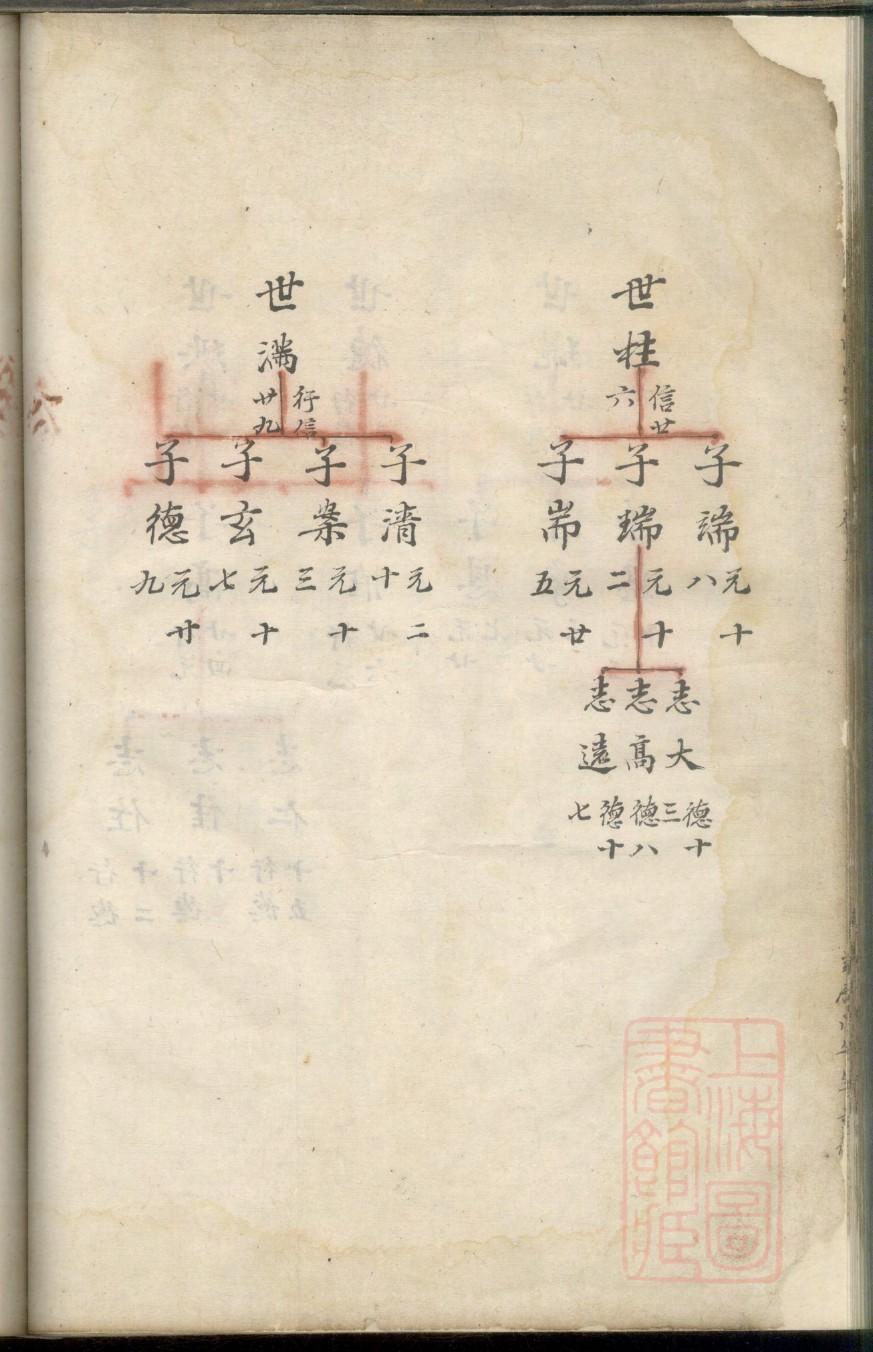 世柱 信廿六
子端 元十八
子瑞 元十二
子耑 元廿五
志大 德十三
志高 德八
志遠 德十七
世滿 行信廿九
子清 元二十
子案 元十三
子玄 元十七
子德 元廿九
上海圖
書館藏